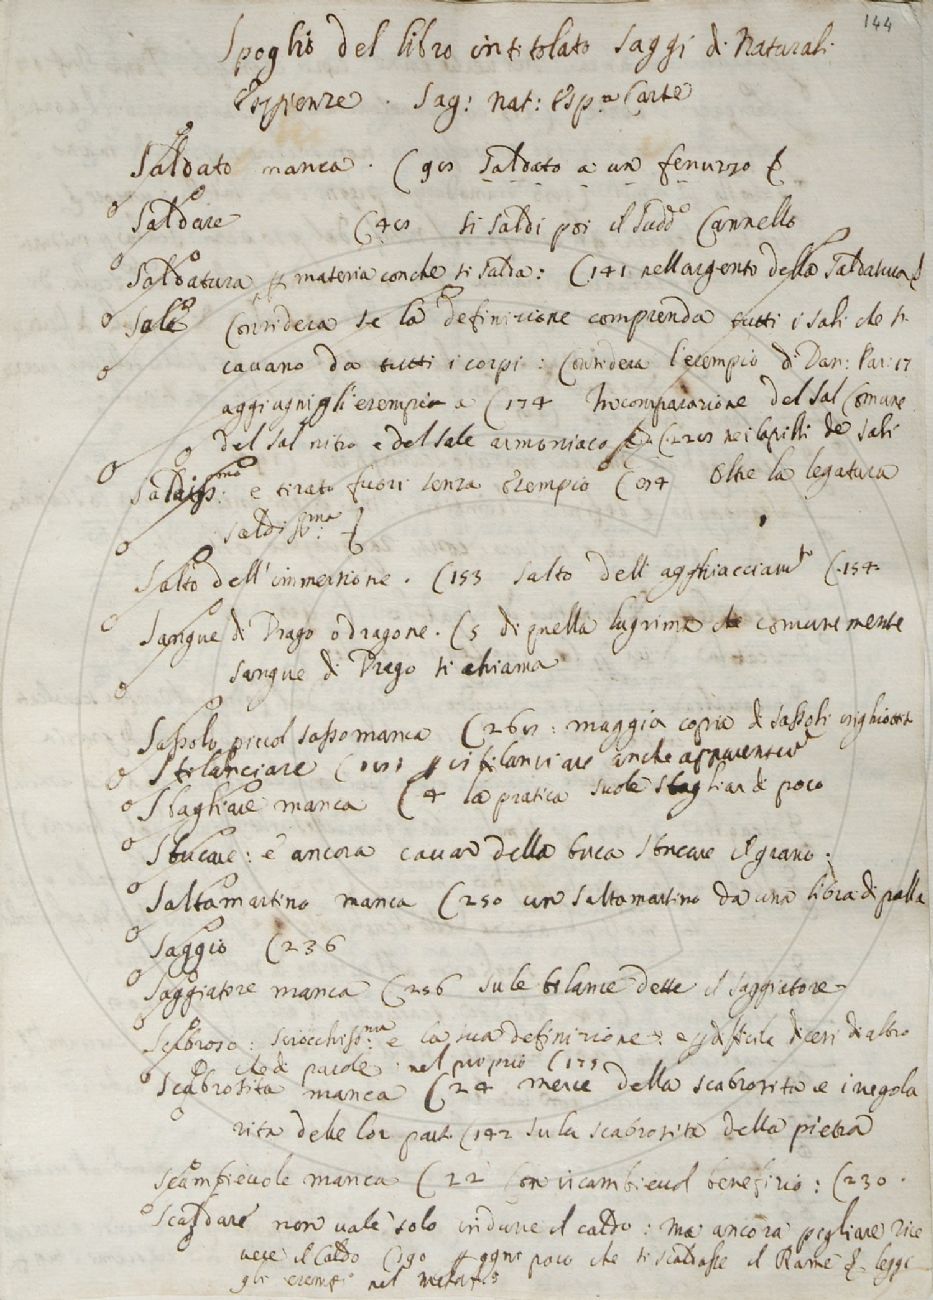 144
Spoglio del libro intitolato Saggi di Naturali
Esperienze. Sag: nat: Esp: Carte
Saldato manca. ( Saldato a un fenuzzo
Saldare ( si saldi poi il sudd.o Cannello
Saldatura materia con che si salda: (141 nell'argento della Saldatura
Sale Considera se la definizione comprenda tutti i sali che si
cavano da tutti i corpi: Considera l'esempio di Dan: Par: 17
aggiugni gli esempi a (174 In comparazione del Sal Comune
del Sal nitro e del Sale armoniaco nei Capelli de sali
Saldiss:mo e tirato fuori senza esempio ( Oltre la legatura
saldiss:ma
Salto dell'immersione. (153 Salto dell'agghiacciam.to (154
Sangue di Drago o dragone. (5 di quella lagrima che comunemente
sangue di Drago si chiama
Sassolo piccol sasso manca ( maggia copia di sassoli
Sbilanciare ( sbilanciare anche
Sbagliare manca (4 la pratica suole sbagliar di poco
Sbucare: è ancora cavar della buca Sbucare il grano:
Saltamartino manca (250 un Saltamartino da una libra di palla
Saggio (236
Saggiatore manca (256 sule bilance dette il saggiatore
Scabroso: sciocchiss:ma e la sua definizione: e difficile dicesi di altro
che di parole nel proprio (175
Scabrosità manca (24 merce della scabrosità e irregola
rità delle lor parti (142 sula scabrosità della pietra
Scambievole manca (22 Con iscambievol benefizio: (230.
Scaldare non vale solo indurre il caldo: ma ancora pigliare rice
vere il Caldo (190 ogni poco che si scaldasse il Rame legge
gli esempi nel